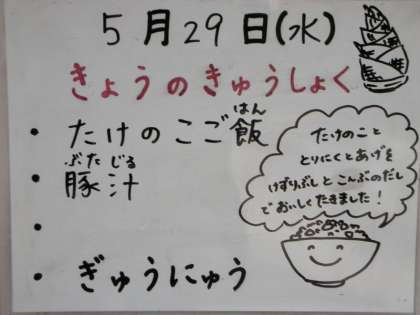 5月29日(水)
きょうのきゅうしょく
・ たけのこご飯
はん
ぶた じる
・ 豚汁
・
・ ぎゅうにゅう
たけのこと
とりにくとあげを
けずりぶしとこんぶのだし
でおいしくたきました!